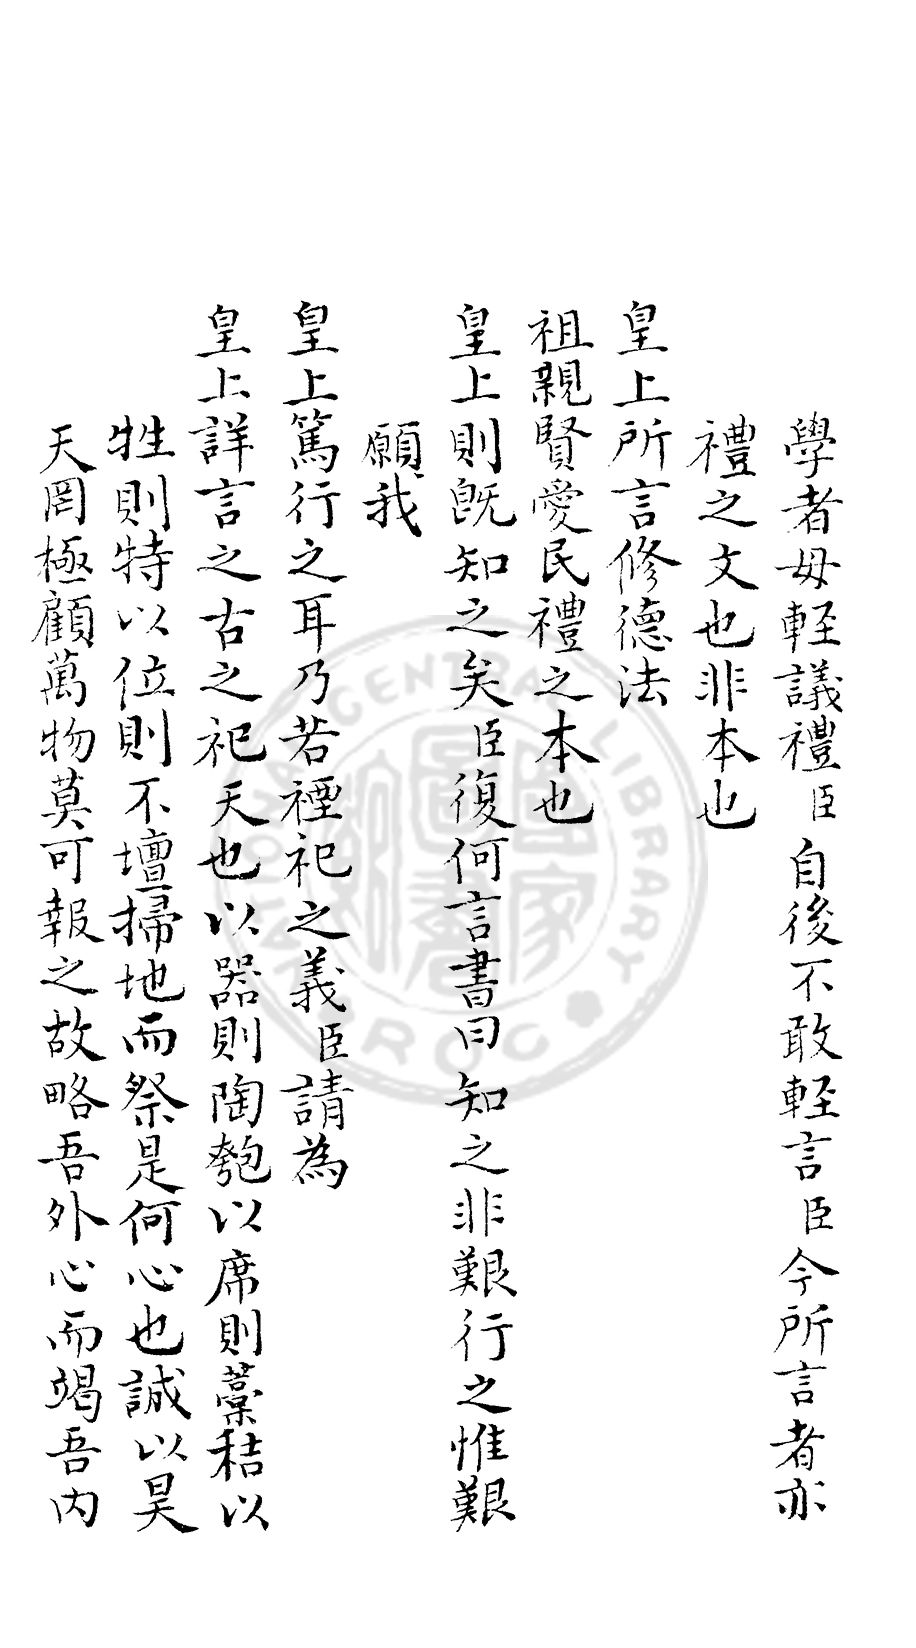 學者毋輊議禮臣自後不敢輊言臣今所言者亦
禮之文也非本也
皇上所言修德法
祖親賢愛民禮之本也
皇上則旣知之矣臣復何言書曰知之非艱行之惟艱
願我
皇上篤行之耳乃若禋祀之義臣請為
皇上詳言之古之祀天也以器則陶匏以席則藁秸以
牲則特以位則不壇掃地而祭是何心也誠以昊
天罔極顧萬物莫可報之故略吾外心而竭吾內
NATIONAL CENTRAL LIBRARY R.O.C
國家圖書館